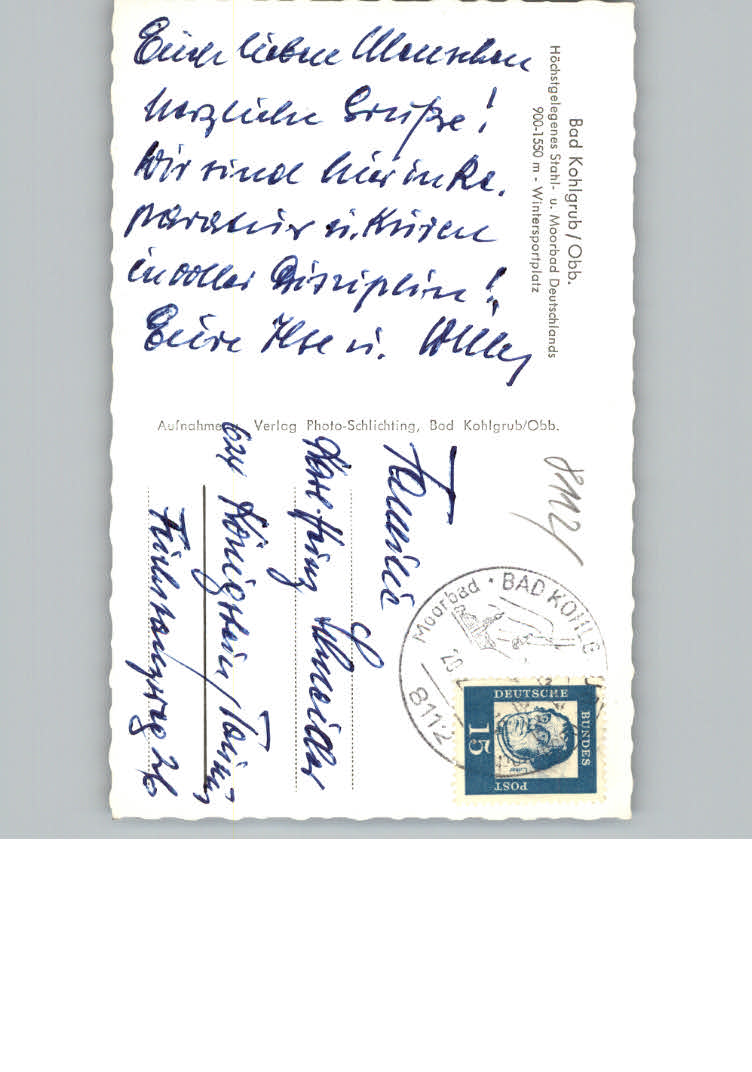 Euch lieben Menschen
herzliche Grüße!
Wir sind hier in Re-
paratur u. Kuren
in voller Disziplin!
Eure Ilse u. Willy
Bad Kohlgrub/Obb.
Höchstgelegenes Stahl- u. Moorbad Deutschlands
900-1550 m - Wintersportplatz
Aufnahme u. Verlag Photo-Schlichting, Bad Kohlgrub/Obb.
8112/
Familie
Karl-Heinz Schneider
624 Königstein/Taunus
26
Moorbad · BAD KOHLG
20
8112
DEUTSCHE
BUNDES
POST
15
Luther